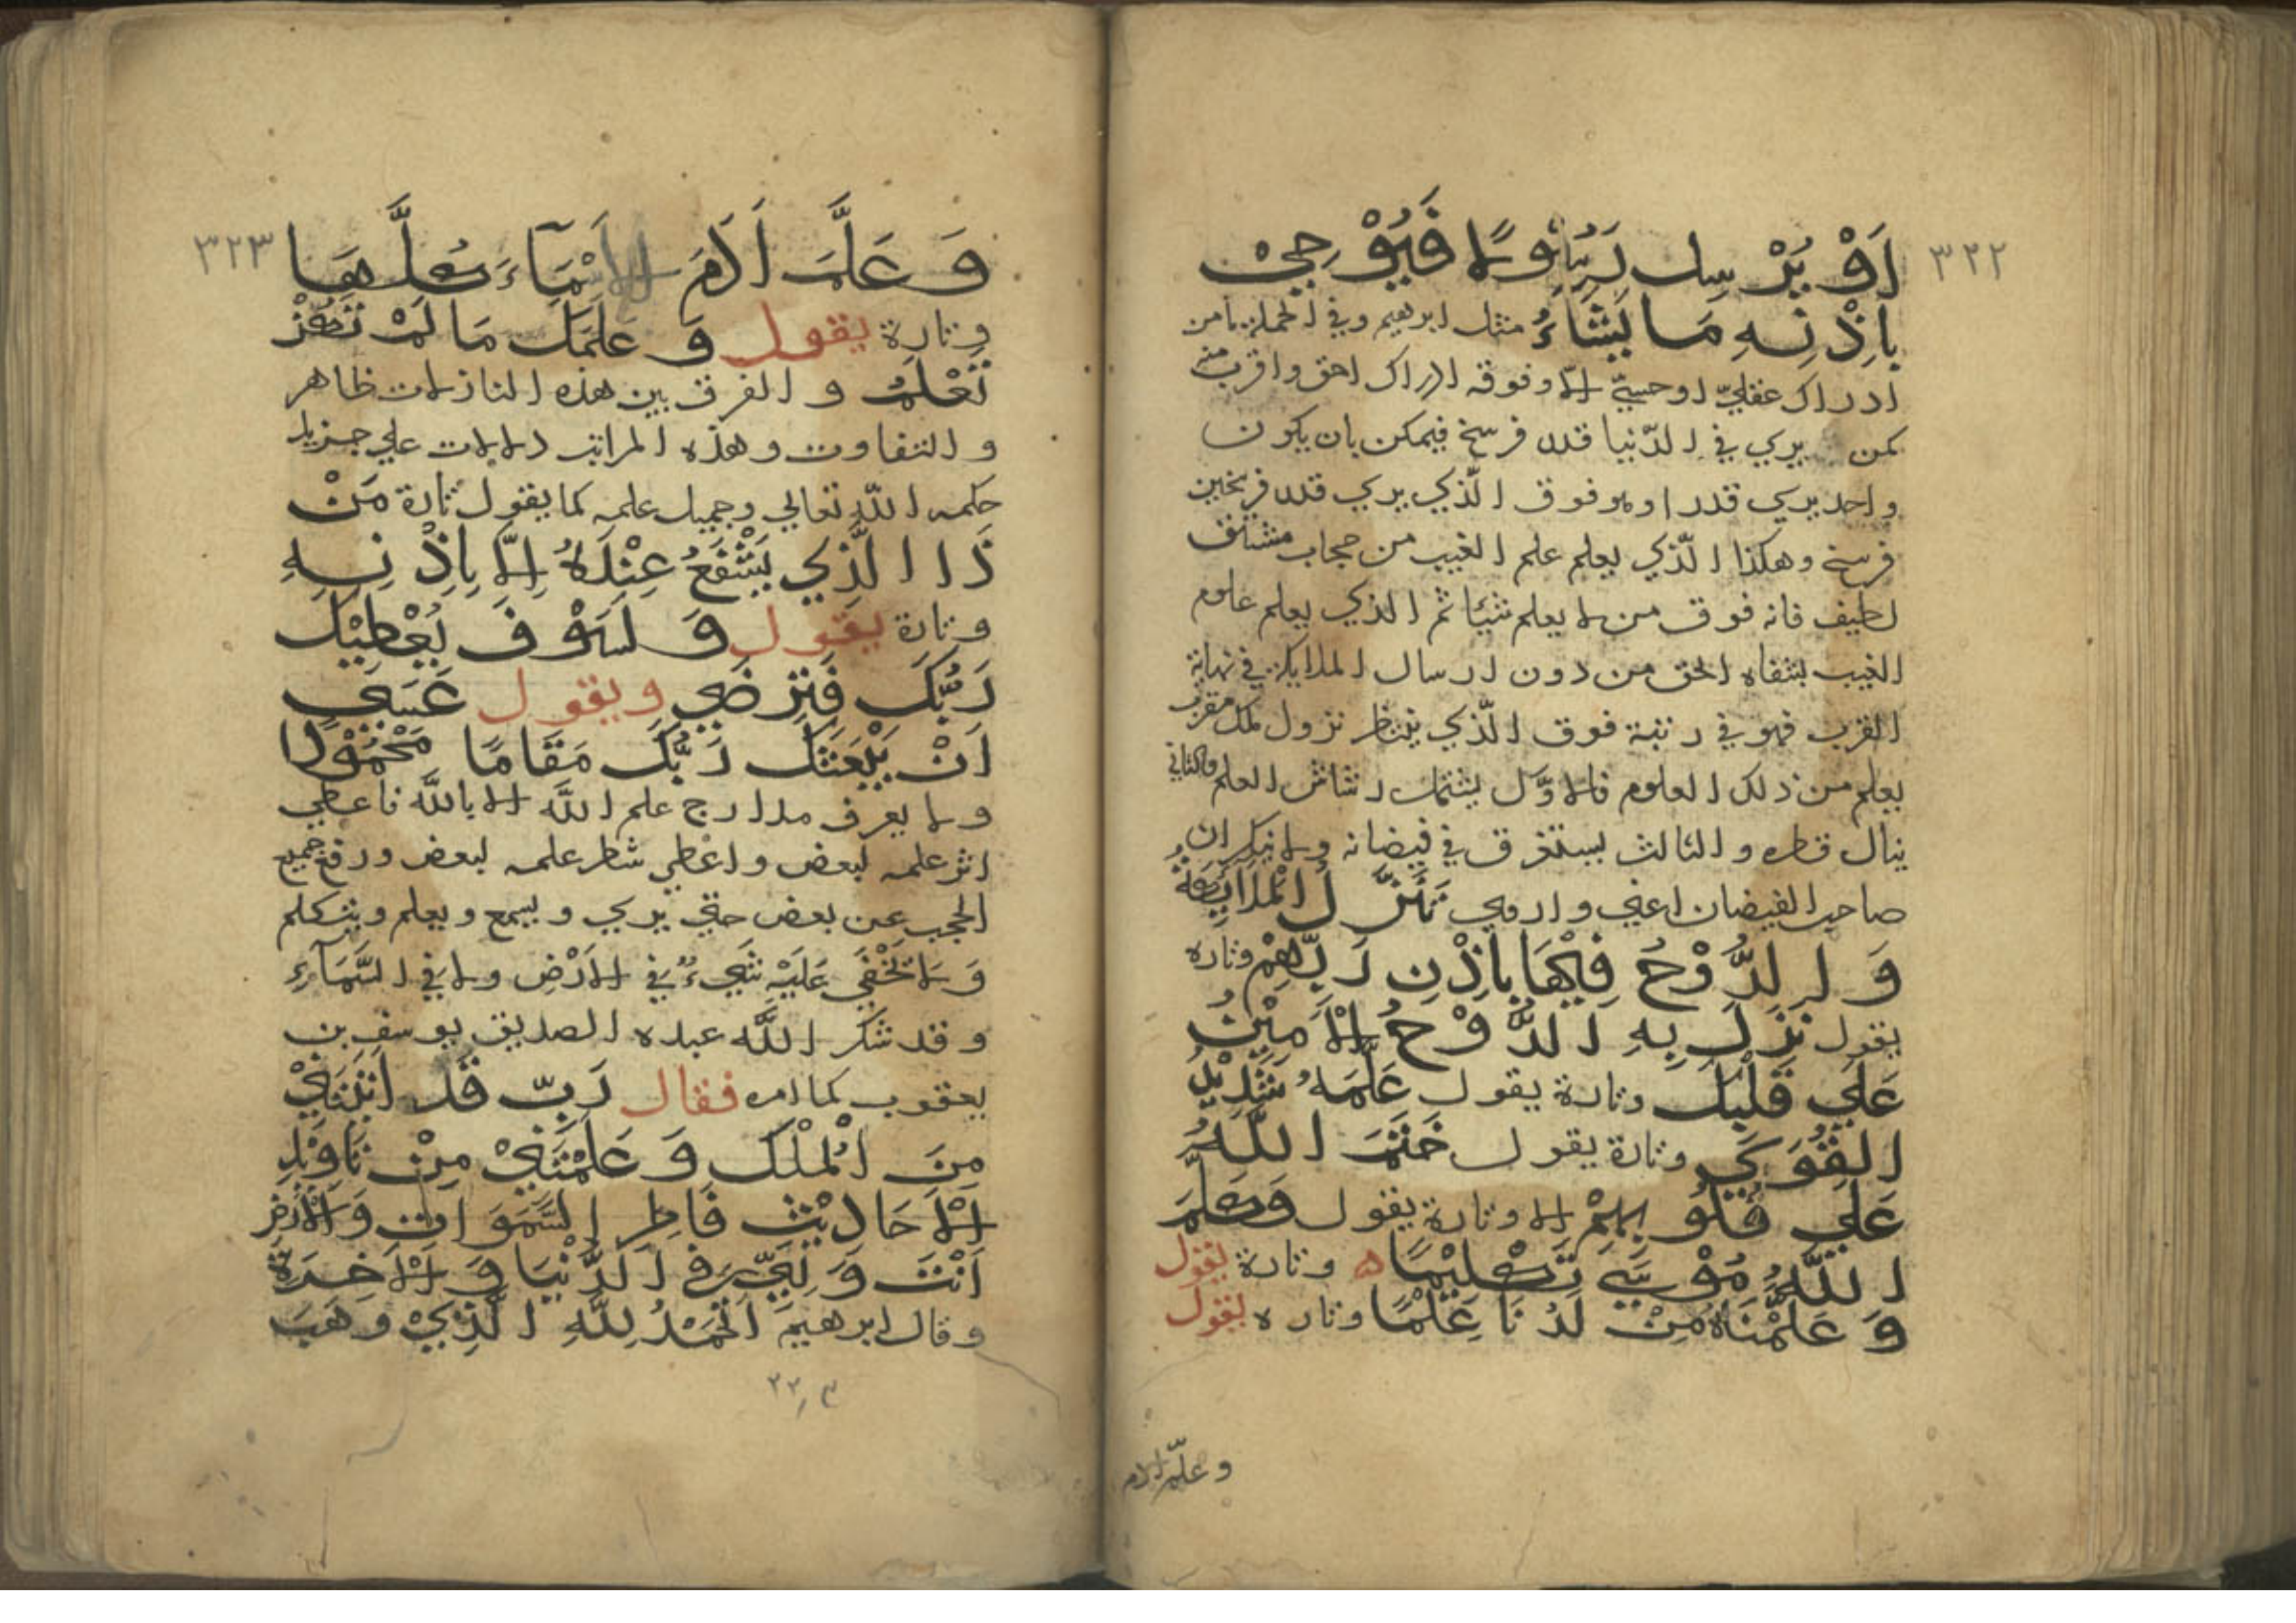 ٣٢٢
اَوْ يُرْسِلَ رَسُوْلًا فَيُوْحِيْ
بِاِذْنِهِ مَا يَشَاءُ مثل ابرهيم وفي الجملة ما من
ادراك عقلي او حسيّ الا وفوقه ادراك احق واقرب منه
كمن يري في الدّنيا قدر فرسخ فيمكن بان يكون
واحد يري قدرا وهو فوق الّذي يري قدر فرسخين
فرسخ وهكذا الّذي يعلم علم الغيب من حجاب مشتق
لطيف فانه فوق من لا يعلم شيئا ثم الذي يعلم علوم
الغيب بشفاه الحق من دون ارسال الملايكة في نهاية
القرب فهو في رتبة فوق الّذي ينتظر نزول ملك مقرب
يعلم من ذلك العلوم فالاوّل يشتمك رشاش العلم والثاني
ينال قطره والثالث يستغرق في فيضانه ولا ينكر ان
صاحب الفيضان اغني واروي تَنَزَّلُ الْمَلَائِكَةُ
وَ الرُّوْحُ فِيْهَا بِاِذْنِ رَبِّهِمْ وتاره
يقول نَزَلَ بِهِ الرُّوْحُ الْاَمِيْنُ
عَلَي قَلْبِكَ وتارة يقول عَلَّمَهُ شَدِيْدُ
الْقُوَي وتارة يقول خَتَمَ اللّٰهُ
عَلَي قُلُوْبِهِمْ الا وتارة يقول وَكَلَّمَ
اللّٰهُ مُوْسَي تَكْلِيْمًا ه وتارة يقول
وَ عَلَّمْنَاهُ مِنْ لَدُنَا عِلْمًا وتاره يقول
وعلّم ادم
٣٢٣
وَ عَلَّمَ اَدَمَ الْاَسْمَآءَ كُلَّهَا
وتارة يقول وَ عَلَّمَكَ مَا لَمْ تَكُنْ
تَعْلَمُ و الفرق بين هذه النازلات ظاهر
و التفاوت وهذه المراتب دلالات علي جزيل
حكمه اللّه تعالي وجميل علمه كما يقول تارة مَنْ
ذَا الَّذِي يَشْفَعُ عِنْدَهُ اِلَّا بِاِذْنِهِ
وتارة يقول وَ لَسَوْفَ يُعْطِيْكَ
رَبُّكَ فَتَرْضَي ويقول عَسَي
اَنْ يَبْعَثَكَ رَبُّكَ مَقَامًا مَحْمُوْدًا
ولا يعرف مدارج علم اللّٰه الا باللّٰه فاعطي
اثر علمه لبعض واعطي شطر علمه لبعض ورفع جميع
الحجب عن بعض حتي يري ويسمع ويعلم ويتكلم
وَ لَا تَخْفَي عَلَيْهِ شَيءٌ في الاَرْضِ ولا في السَّمَآءِ
وقد شكر اللّٰه عبده الصديق يوسف بن
يعقوب كما امره فقال رَبِّ قَدْ اَتَيْتَنِيْ
مِنَ الْمُلْكِ وَ عَلَّمْتَنِيْ مِنْ تَاوِيْلِ
الْاَحَادِيْثِ فَاطِرَ السَّمَوَاتِ وَالْاَرْضِ
اَنْتَ وَلِيّ في الدُّنْيَا وَ الْاَخِرَةِ
وقال ابرهيم اَلْحَمْدُ لِلّٰهِ الَّذِيْ وَهَبَ